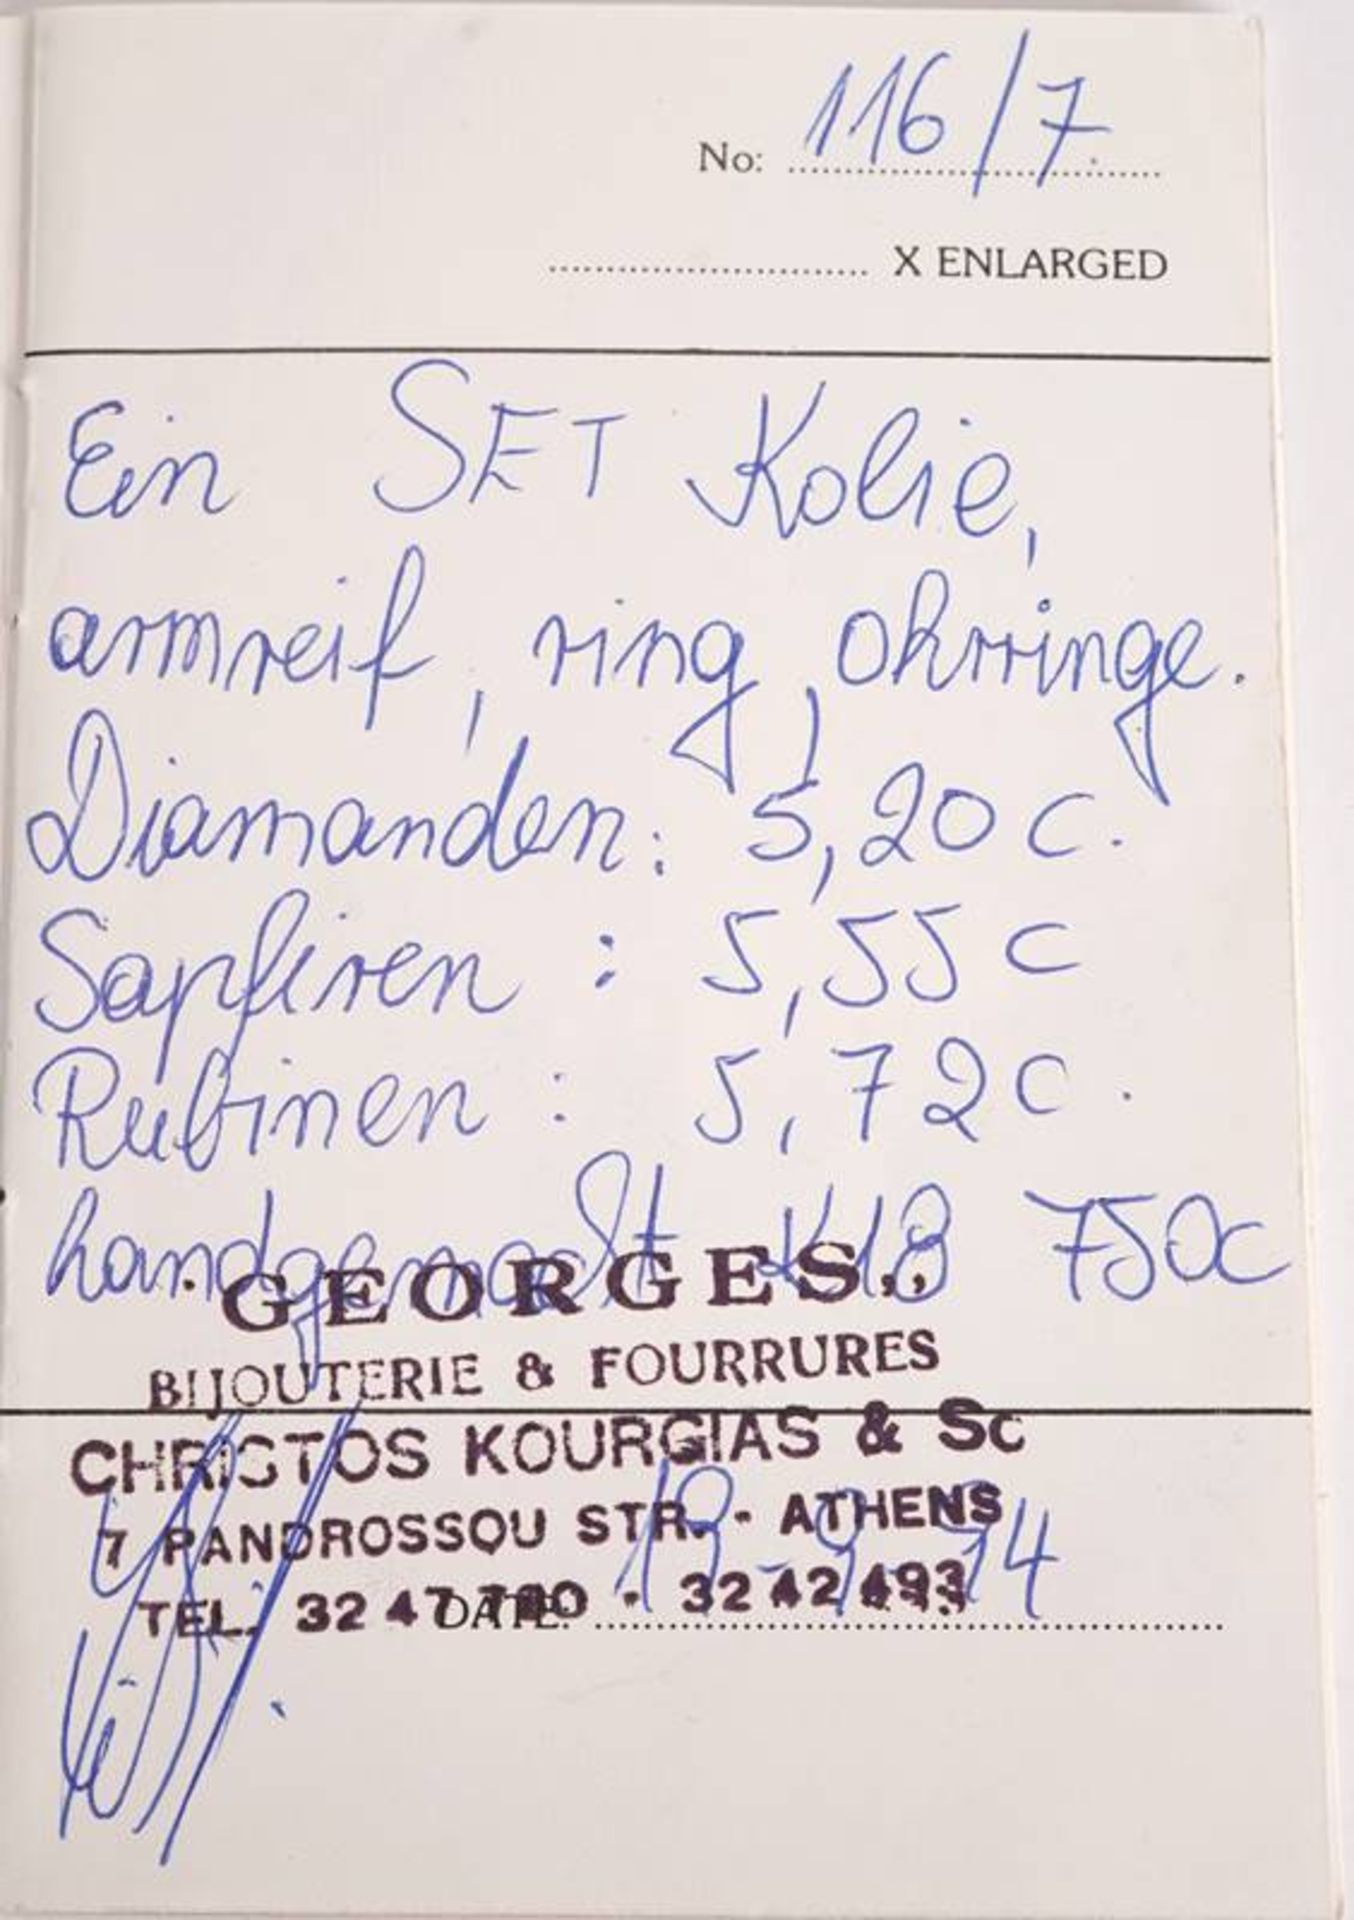 No: 116/7
X ENLARGED
Ein SET Kolie,
armreif, ring, ohrringe.
Diamanden: 5,20 c.
Sapfiren : 5,55 c
Rubinen : 5,72 c.
handgemacht K18 750c
GEORGES"
BIJOUTERIE & FOURRURES
CHRISTOS KOURGIAS & Sc
7 PANDROSSOU STR. - ATHENS
TEL. 32 47 - 32 42 493
DATE: